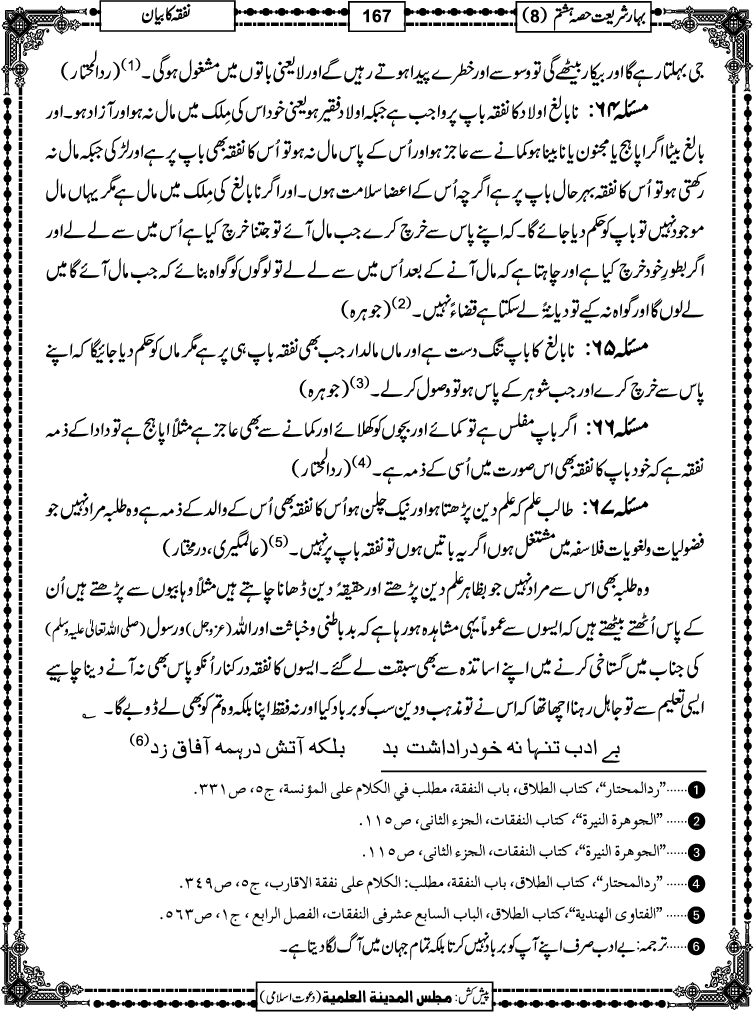 بہار شریعت حصہ ہشتم (8)
167
نفقہ کا بیان
جی بہلتا رہے گا اور بیکار بیٹھے گی تو وسوسے اور خطرے پیدا ہوتے رہیں گے اور لایعنی باتوں میں مشغول ہوگی۔(1) (ردالمحتار)
مسئلہ ۶۴: نابالغ اولاد کا نفقہ باپ پر واجب ہے جبکہ اولاد فقیر ہو یعنی خود اس کی مِلک میں مال نہ ہو اور آزاد ہو۔ اور
بالغ بیٹا اگر اپاہج یا مجنون یا نابینا ہو کمانے سے عاجز ہو اور اُس کے پاس مال نہ ہو تو اُس کا نفقہ بھی باپ پر ہے اور لڑکی جبکہ مال نہ
رکھتی ہو تو اُس کا نفقہ بہرحال باپ پر ہے اگرچہ اُس کے اعضا سلامت ہوں۔ اور اگر نابالغ کی مِلک میں مال ہے مگر یہاں مال
موجود نہیں تو باپ کو حکم دیا جائے گا۔ کہ اپنے پاس سے خرچ کرے جب مال آئے تو جتنا خرچ کیا ہے اُس میں سے لے لے اور
اگر بطورِ خود خرچ کیا ہے اور چاہتا ہے کہ مال آنے کے بعد اُس میں سے لے لے تو لوگوں کو گواہ بنائے کہ جب مال آئے گا میں
لے لوں گا اور گواہ نہ کیے تو دیانۃً لے سکتا ہے قضاءً نہیں۔(2) (جوہرہ)
مسئلہ ۶۵: نابالغ کا باپ تنگ دست ہے اور ماں مالدار جب بھی نفقہ باپ ہی پر ہے مگر ماں کو حکم دیا جائیگا کہ اپنے
پاس سے خرچ کرے اور جب شوہر کے پاس ہو تو وصول کرلے۔(3) (جوہرہ)
مسئلہ ۶۶: اگر باپ مفلس ہے تو کمائے اور بچوں کو کھلائے اور کمانے سے بھی عاجز ہے مثلاً اپاہج ہے تو دادا کے ذمہ
نفقہ ہے کہ خود باپ کا نفقہ بھی اس صورت میں اُسی کے ذمہ ہے۔(4) (ردالمحتار)
مسئلہ ۶۷: طالب علم کہ علم دین پڑھتا ہو اور نیک چلن ہو اُس کا نفقہ بھی اُس کے والد کے ذمہ ہے وہ طلبہ مراد نہیں جو
فضولیات و لغویات فلاسفہ میں مشتغل ہوں اگر یہ باتیں ہوں تو نفقہ باپ پر نہیں۔(5) (عالمگیری، درمختار)
وہ طلبہ بھی اس سے مراد نہیں جو بظاہر علم دین پڑھتے اور حقیقۃً دین ڈھانا چاہتے ہیں مثلاً وہابیوں سے پڑھتے ہیں اُن
کے پاس اُٹھتے بیٹھتے ہیں کہ ایسوں سے عموماً یہی مشاہدہ ہو رہا ہے کہ بدباطنی و خباثت اور اللہ (عزوجل) و رسول (صلی اللہ تعالیٰ علیہ وسلم)
کی جناب میں گستاخی کرنے میں اپنے اساتذہ سے بھی سبقت لے گئے۔ ایسوں کا نفقہ درکنار اُنکو پاس بھی نہ آنے دینا چاہیے
ایسی تعلیم سے تو جاہل رہنا اچھا تھا کہ اس نے تو مذہب و دین سب کو برباد کیا اور نہ فقط اپنا بلکہ وہ تم کو بھی لے ڈوبے گا۔ ؎
بے ادب تنها نه خود راداشت بد بلكه آتش درہمه آفاق زد(6)
1......”ردالمحتار“، کتاب الطلاق، باب النفقة، مطلب في الكلام على المؤنسة، ج٥، ص٣٣١.
2...... ”الجوهرة النيرة“، كتاب النفقات، الجزء الثانى، ص١١٥.
3...... ”الجوهرة النيرة“، كتاب النفقات، الجزء الثانى، ص١١٥.
4...... ”ردالمحتار“، كتاب الطلاق، باب النفقة، مطلب: الكلام على نفقة الاقارب، ج٥، ص٣٤٩.
5...... ”الفتاوى الهندية“،كتاب الطلاق، الباب السابع عشرفى النفقات، الفصل الرابع ، ج١، ص٥٦٣.
6......ترجمہ: بے ادب صرف اپنے آپ کو برباد نہیں کرتا بلکہ تمام جہان میں آگ لگا دیتا ہے۔
پیش کش: مجلس المدينة العلمية (دعوت اسلامی)